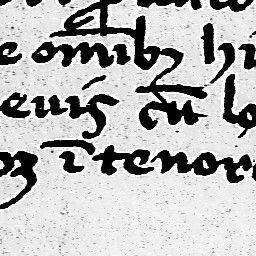 e om̅ib; hi
euis cu̅ lo
oꝝ i̅ tenor